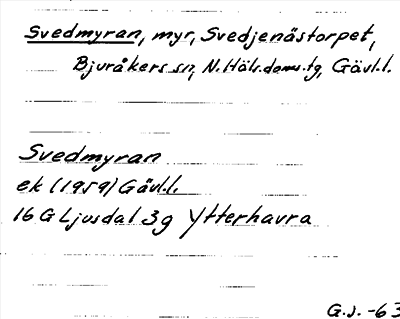 Svedmyran, myr, Svedjenästorpet,
Bjuråkers sn, N. Häls. doms. tg, Gävl.l.
Svedmyran
ek (1959) Gävl.l.
16 G Ljusdal 3g Ytterhavra
G.J. -63